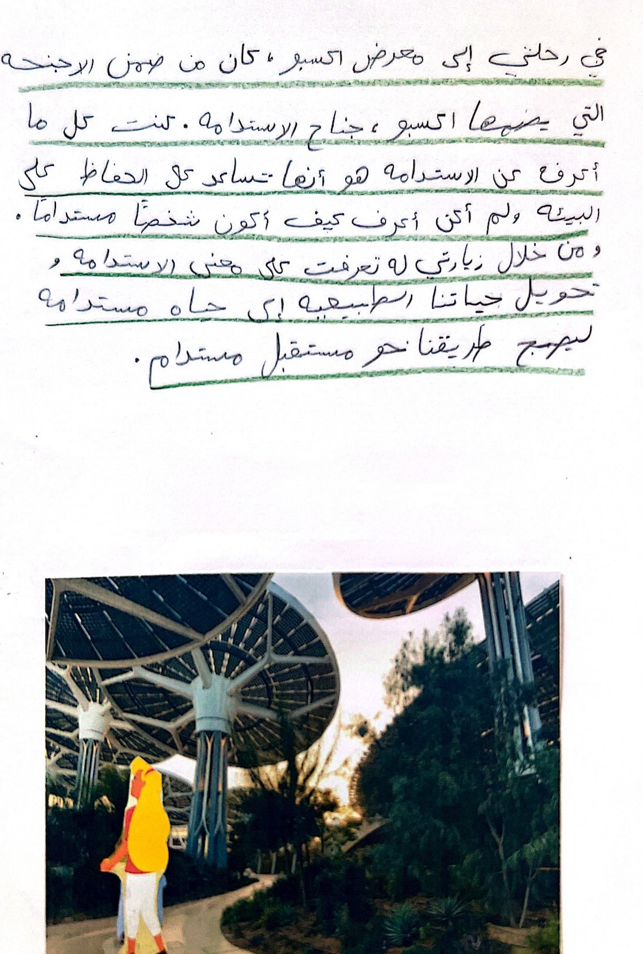 في رحلتي إلى معرض اكسبو ، كان من ضمن الاجنحه
التي يضمها اكسبو ، جناح الاستدامه . كنت كل ما
أعرفه عن الاستدامه هو أنها تساعد على الحفاظ على
البيئه ولم أكن أعرف كيف أكون شخصًا مستدامًا .
ومن خلال زيارتي له تعرفت على معنى الاستدامه و
تحويل حياتنا الطبيعيه إلى حياه مستدامه
ليصبح طريقنا نحو مستقبل مستدام .